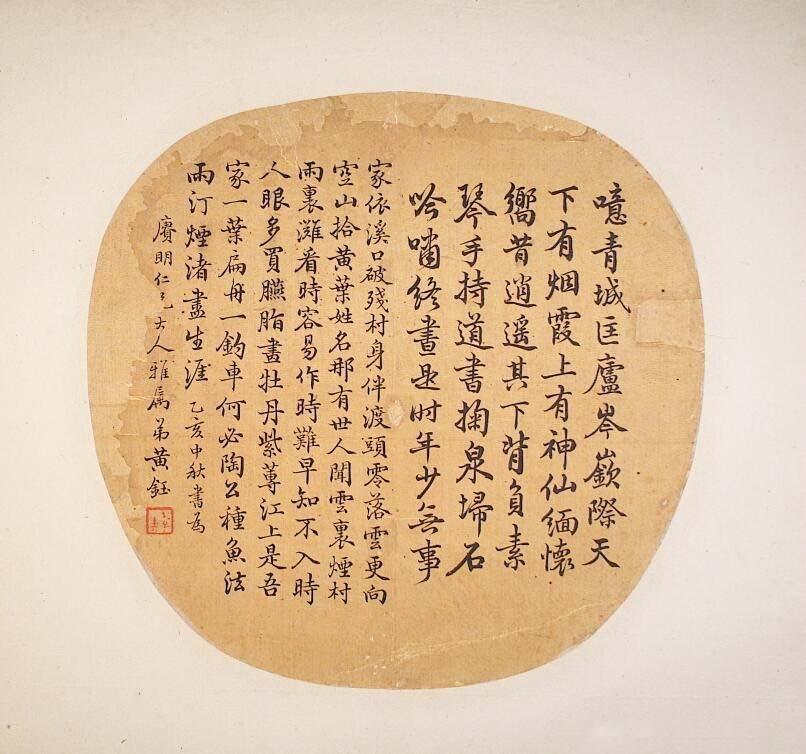 噫青城匡廬岑嶔際天
下有烟霞上有神仙緬懷
嚮昔逍遥其下背負素
琴手持道書掬泉埽石
吟嘯終晝是时年少无事
家依溪口破殘村身伴渡頭零落雲更向
空山拾黄葉姓名那有世人聞雲裏煙村
雨裏灘看時容易作時難早知不入時
人眼多買臙脂畫牡丹紫蓴江上是吾
家一葉扁舟一釣車何必陶公種魚法
雨汀煙渚盡生涯 乙亥中秋書為
賡明仁兄大人雅屬弟黄鈺